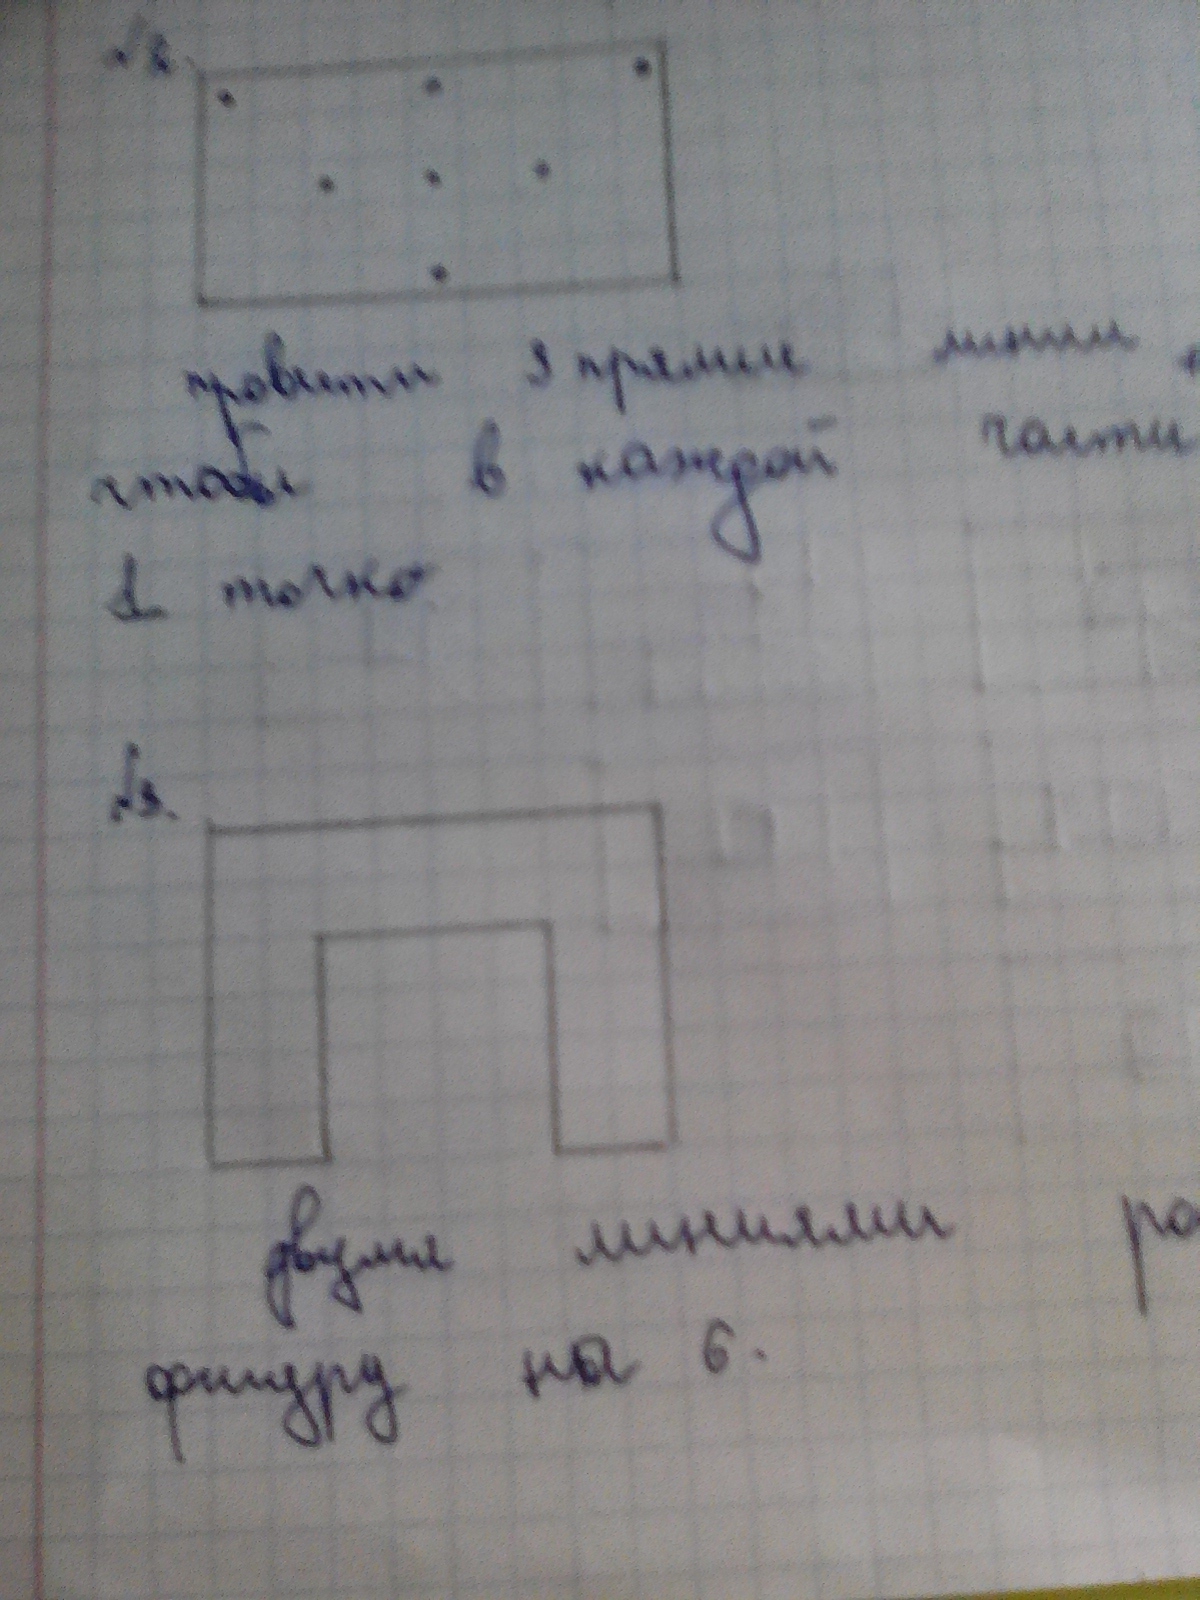 №2.
провити 3 прямые линии
чтобы в каждой части
1 точко
№3.
двумя линиями ра
фигуру на 6.